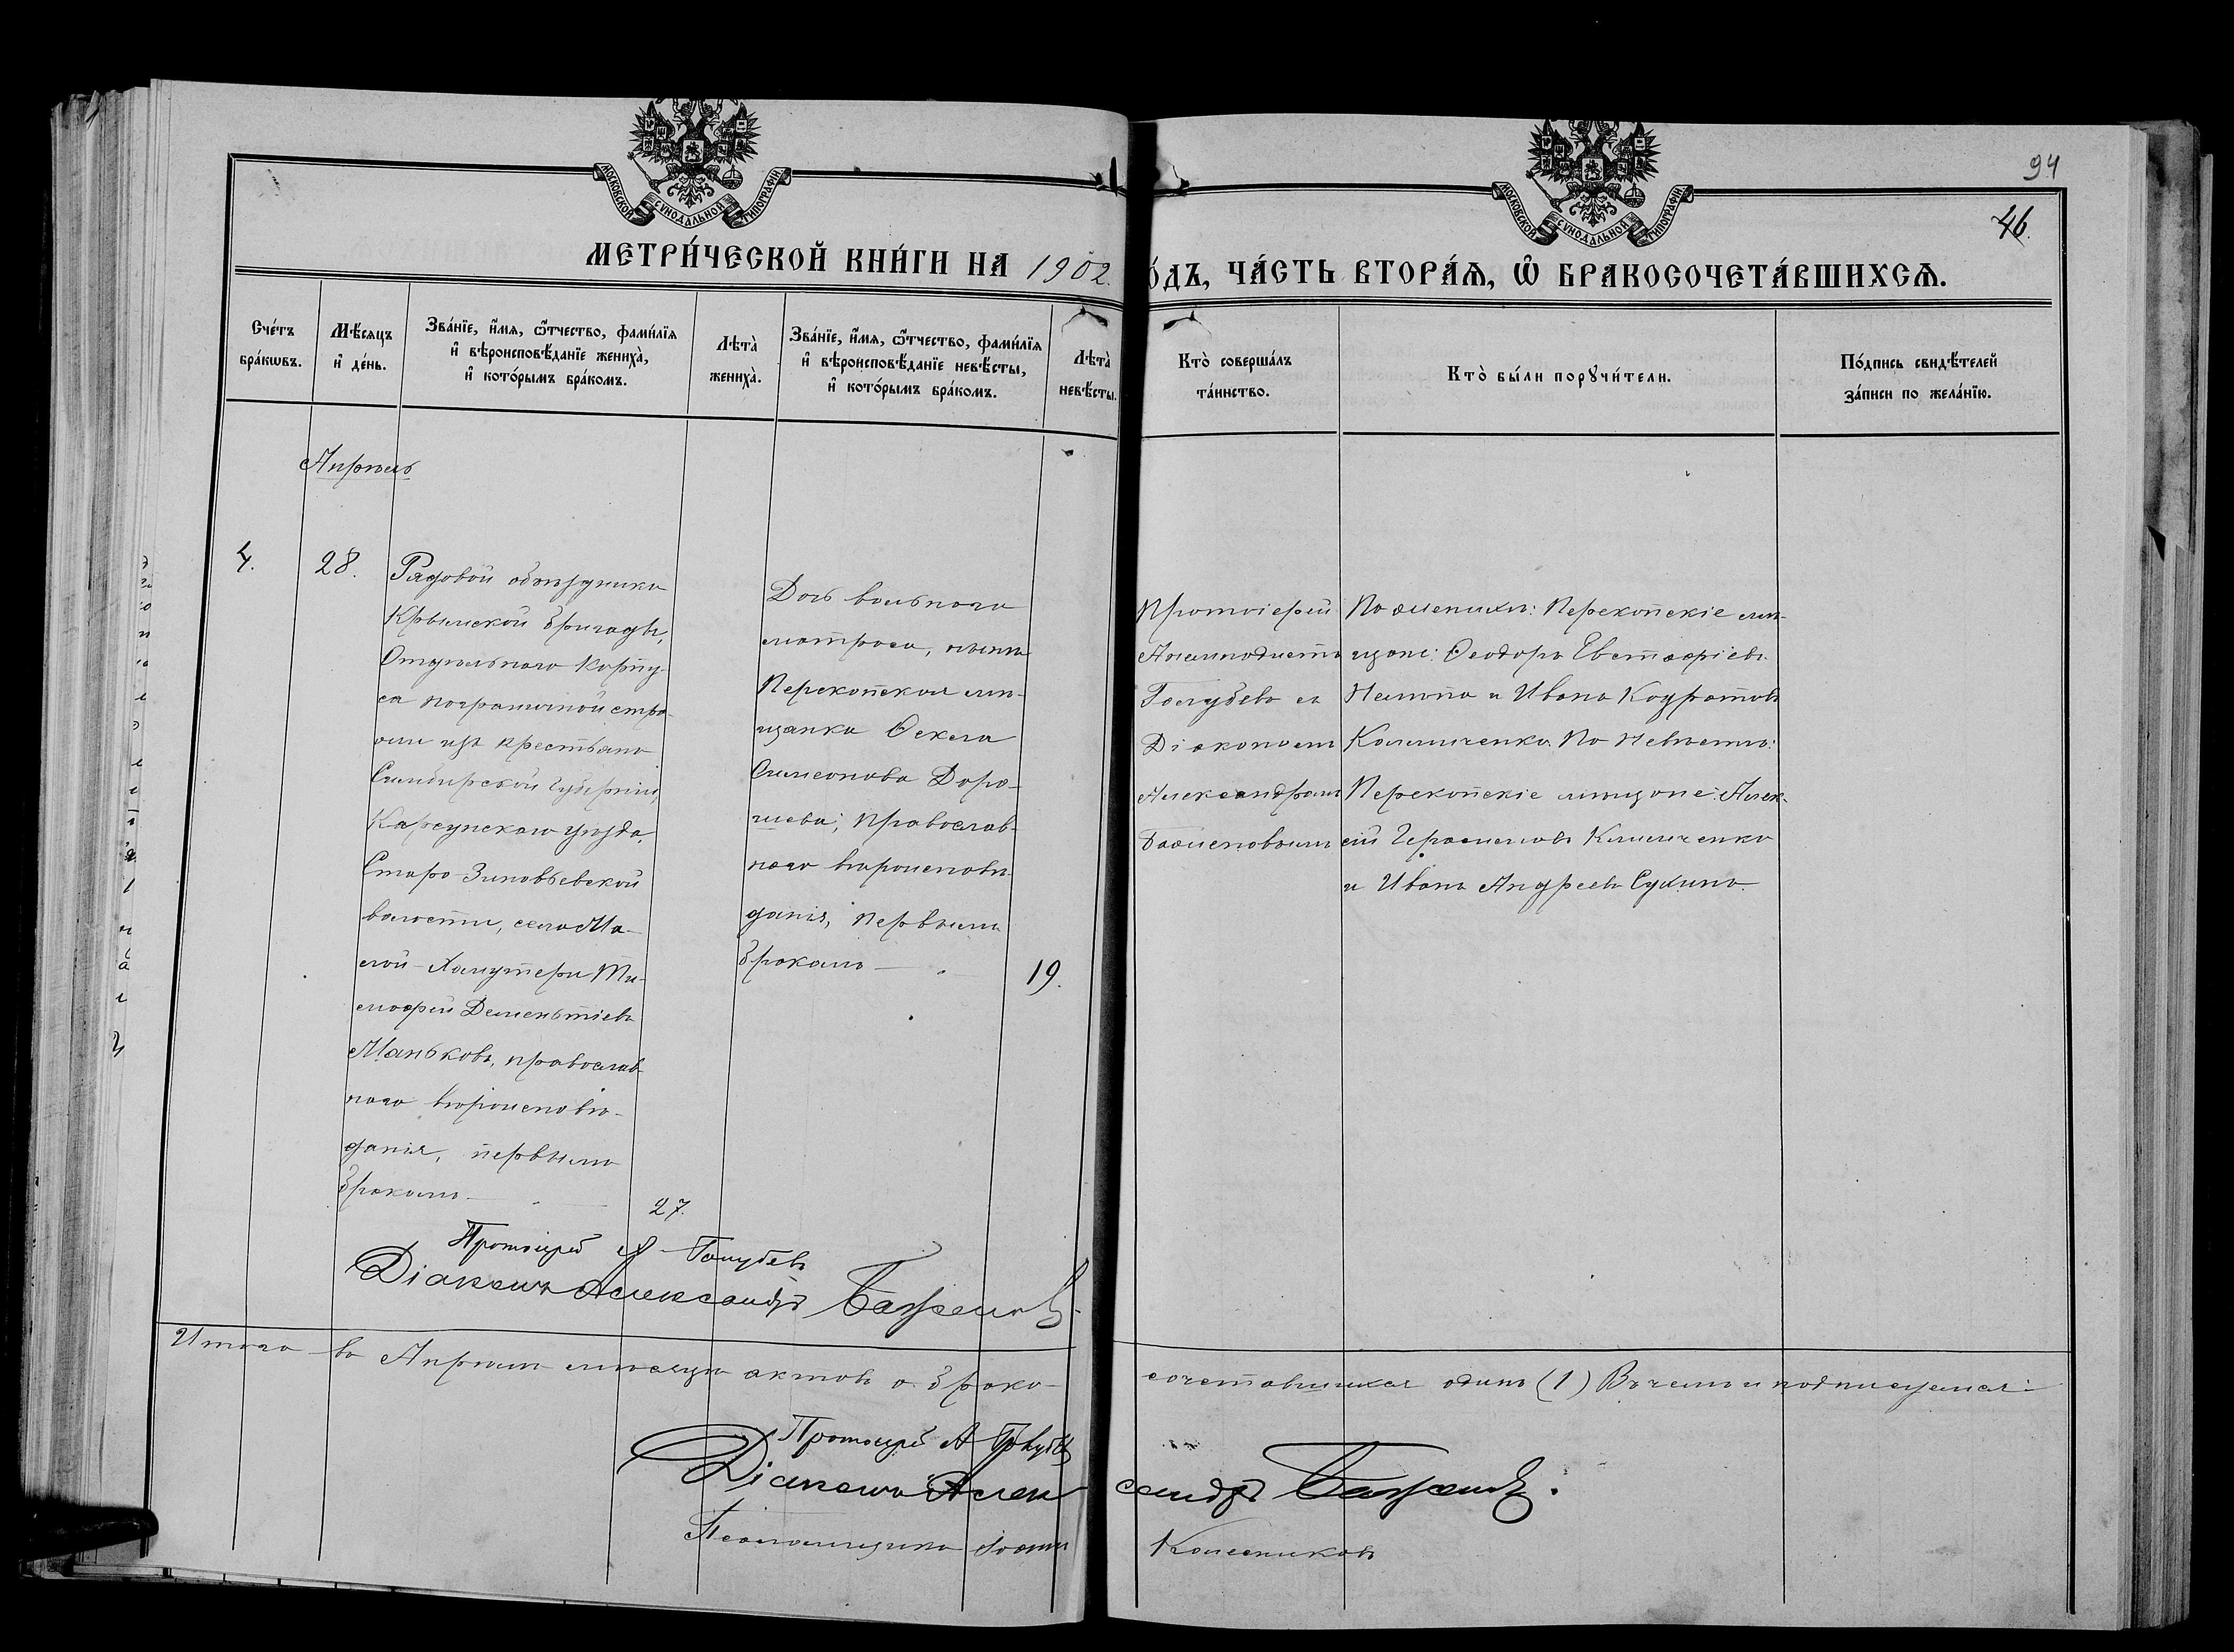 МОСКОВСКОЙ СѴНОДАЛЬНОЙ ТИПОГРАФІИ
МОСКОВСКОЙ СѴНОДАЛЬНОЙ ТИПОГРАФІИ
94
46.
МЕТРИ́ЧЕСКОЙ КНИ́ГИ НА 1902.
О́ДЪ, ЧА́СТЬ ВТОРА́Ѧ, Ѡ҆ БРАКОСОЧЕТА́ВШИХСѦ.
Сче́тъ
бра́кѡвъ.
Мѣ́сѧцъ
и҆ де́нь.
Зва́нїе, и҆́мѧ, ѻ҆́тчество, фами́лїѧ
и҆ вѣроисповѣ́данїе жениха̀,
и҆ кото́рымъ бра́комъ.
Лѣта̀
жениха̀.
Зва́нїе, и҆́мѧ, ѻ҆́тчество, фами́лїѧ
и҆ вѣроисповѣ́данїе невѣ́сты,
и҆ кото́рымъ бра́комъ.
Лѣта̀
невѣ́сты.
Кто̀ соверша́лъ
та́инство.
Кто̀ бы́ли порꙋчи́тели.
По́дпись свидѣ́телей
за́писи по жела́нїю.
Апрѣль
4.
28.
Рядовой объѣздчика
Крымской бригады,
Отдѣльнаго Корпу-
са пограничной стра-
жи изъ крестьянъ
Симбирской Губерніи,
Карсунскаго уѣзда,
Старо-Зиновьевской
волости, села Ма-
лой-Хомутери Ти-
моѳей Дементіевъ
Маньковъ, православ-
наго вѣроисповѣ-
данія, первымъ
бракомъ
27.
Дочь вольнаго
матроса, нынѣ
Перекопская мѣ-
щанка Ѳекла
Симеонова Доро-
шева, православ-
наго вѣроисповѣ-
данія, первымъ
бракомъ
19.
Протоіерей
Анемподистъ
Голубевъ съ
Діакономъ
Александромъ
Баженовымъ
По женихѣ: Перекопскіе мѣ-
щане: Ѳеодоръ Евстафіевъ
и Иванъ Кодратовъ
По Невѣстѣ:
Перекопскіе мѣщане: Алек-
сѣй Герасимовъ Климченко
и Иванъ Андреевъ Сукинъ.
Протоіерей А Голубевъ
Діаконъ Александръ Баженовъ
Итого въ Апрѣлѣ мѣсяцѣ актовъ о брако-
сочетавшихся одинъ (1) Въ чемъ и подписуемся:
Протоіерей А Голубевъ
Діаконъ Александръ Баженовъ.
Псаломщикъ Іоаннъ Колесниковъ